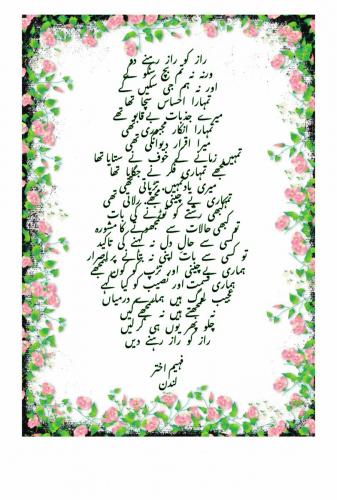 راز کو راز رہنے دو
ورنہ نہ تم بچ سکو گے
اور نہ ہم جی سکیں گے
تمہارا احساس سچا تھا
میرے جذبات بے قابو تھے
تمہارا انکار مجبوری تھی
میرا اقرار دیوانگی تھی
تمہیں زمانے کے خوف نے ستایا تھا
مجھے تمہاری فکر نے جگایا تھا
میری یاد تمہیں تڑپاتی تھی
تمہاری بے چینی مجھے رلاتی تھی
کبھی رشتے کو توڑنے کی بات
تو کبھی حالات سے سمجھوتے کا مشورہ
تو کسی سے حال دل نہ کہنے کی تاکید
تو کسی سے بات اپنی نہ بتانے پر اصرار
ہماری بے چینی اور تڑپ کو کون سمجھے
ہماری قسمت اور نصیب کو کیا کہے
عجیب لوگ ہیں ہمارے درمیاں
نہ سمجھتے ہیں نہ سمجھے گیں
چلو پھر یوں ہی کر لیں
راز کو راز رہنے دیں
فہیم اختر
لندن